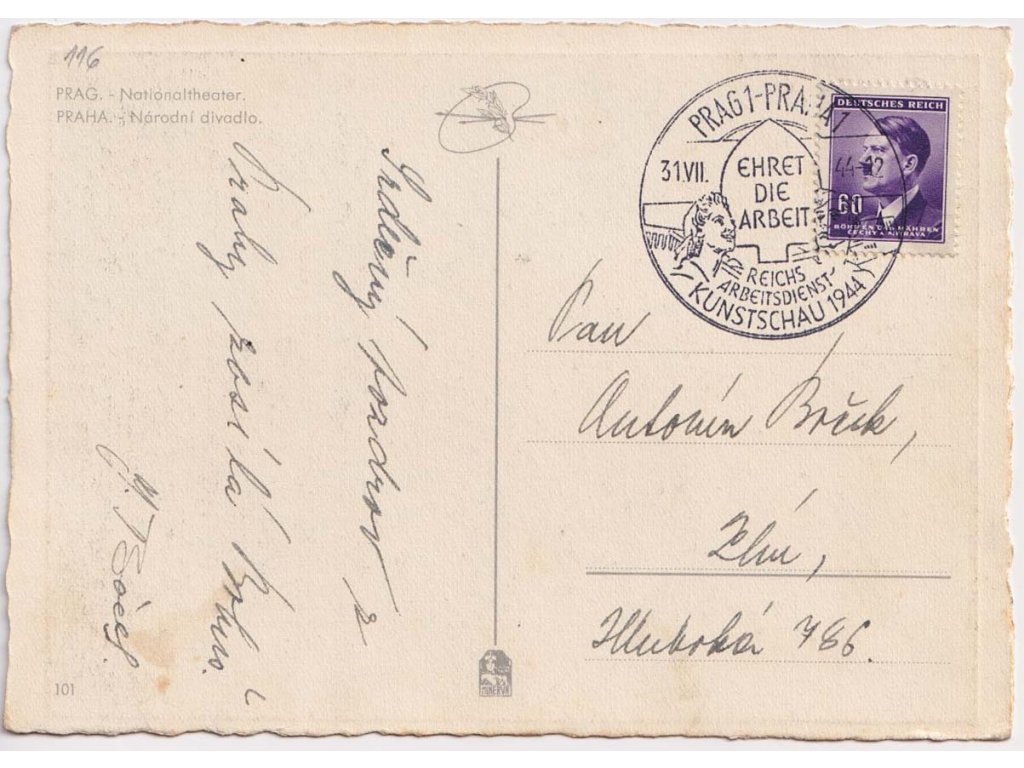 116
PRAG. - Nationaltheater.
PRAHA. - Národní divadlo.
Srdečný pozdrav z
Prahy zasílá
101
MINERVA
PRAG 1 - PRAHA 1
31.VII. 44-12
EHRET
DIE
ARBEIT
REICHS
ARBEITSDIENST-
KUNSTSCHAU 1944
DEUTSCHES REICH
60
BÖHMEN UND MÄHREN
ČECHY A MORAVA
Pan
Antonín
Zlín,
786.